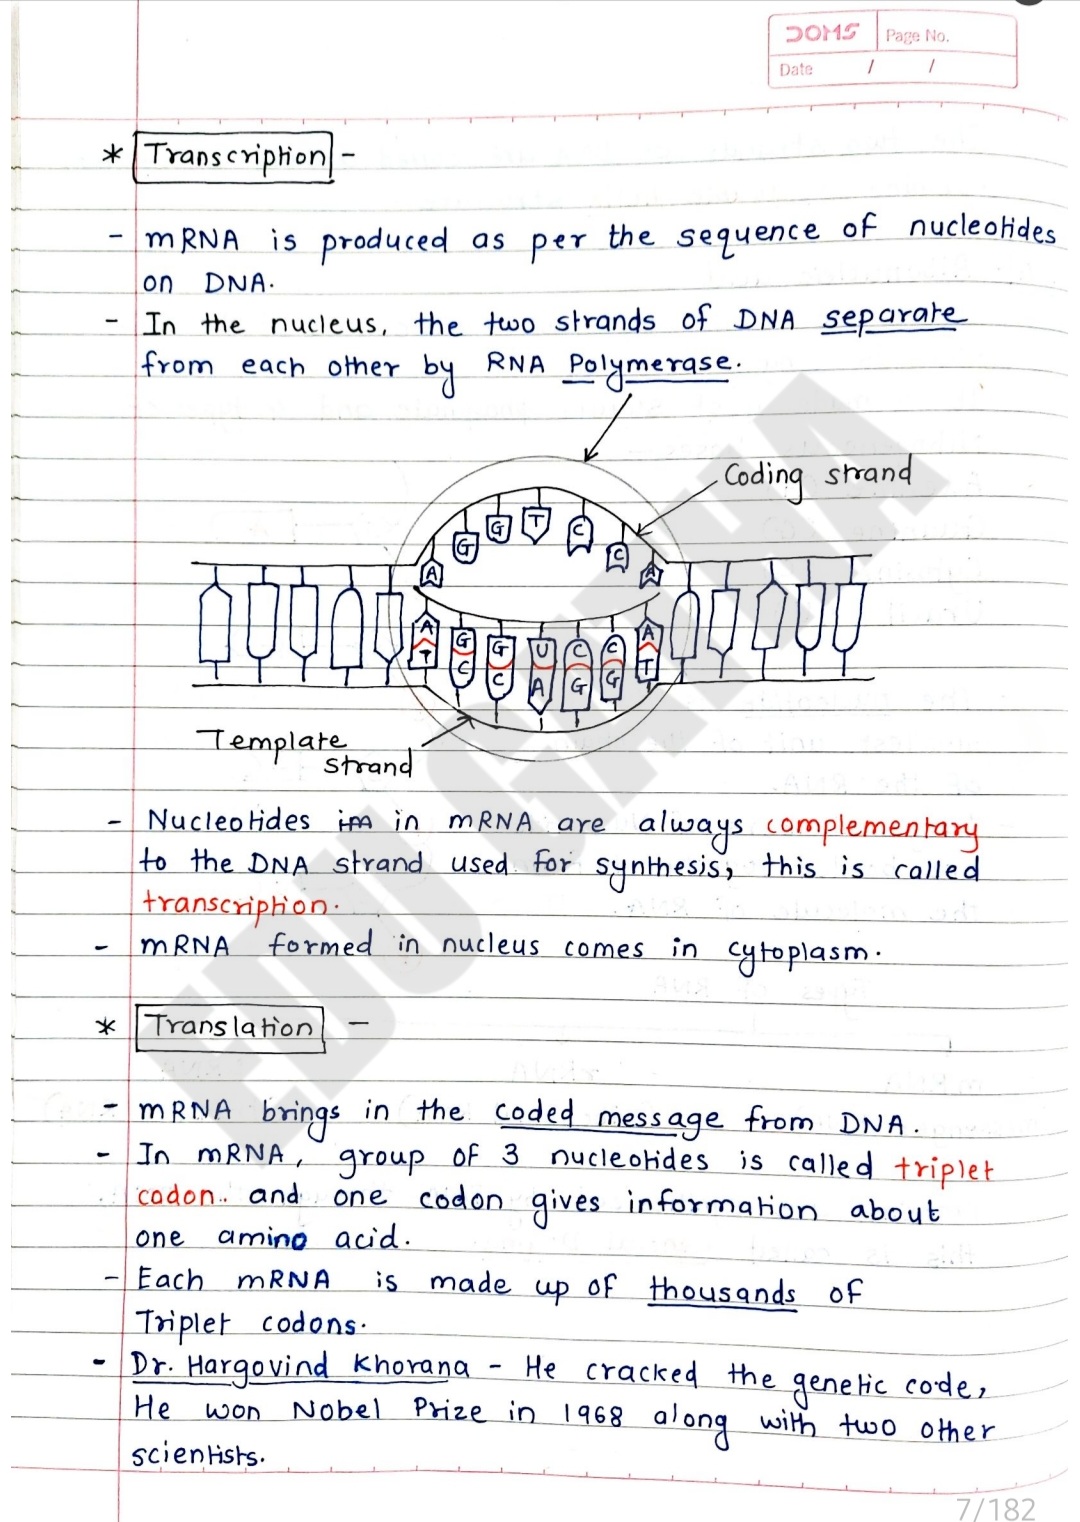 DOMS Page No.
Date / /
* Transcription -
- mRNA is produced as per the sequence of nucleotides
on DNA.
- In the nucleus, the two strands of DNA separate
from each other by RNA Polymerase.
Coding strand
A G G T C C A
A G G U C C A
T C C A G G T
Template
strand
- Nucleotides im in mRNA are always complementary
to the DNA strand used for synthesis, this is called
transcription.
- mRNA formed in nucleus comes in cytoplasm.
* Translation -
- mRNA brings in the coded message from DNA.
- In mRNA, group of 3 nucleotides is called triplet
codon.. and one codon gives information about
one amino acid.
- Each mRNA is made up of thousands of
Triplet codons.
- Dr. Hargovind Khorana - He cracked the genetic code,
He won Nobel Prize in 1968 along with two other
scientists.
EDU GATHA
7/182